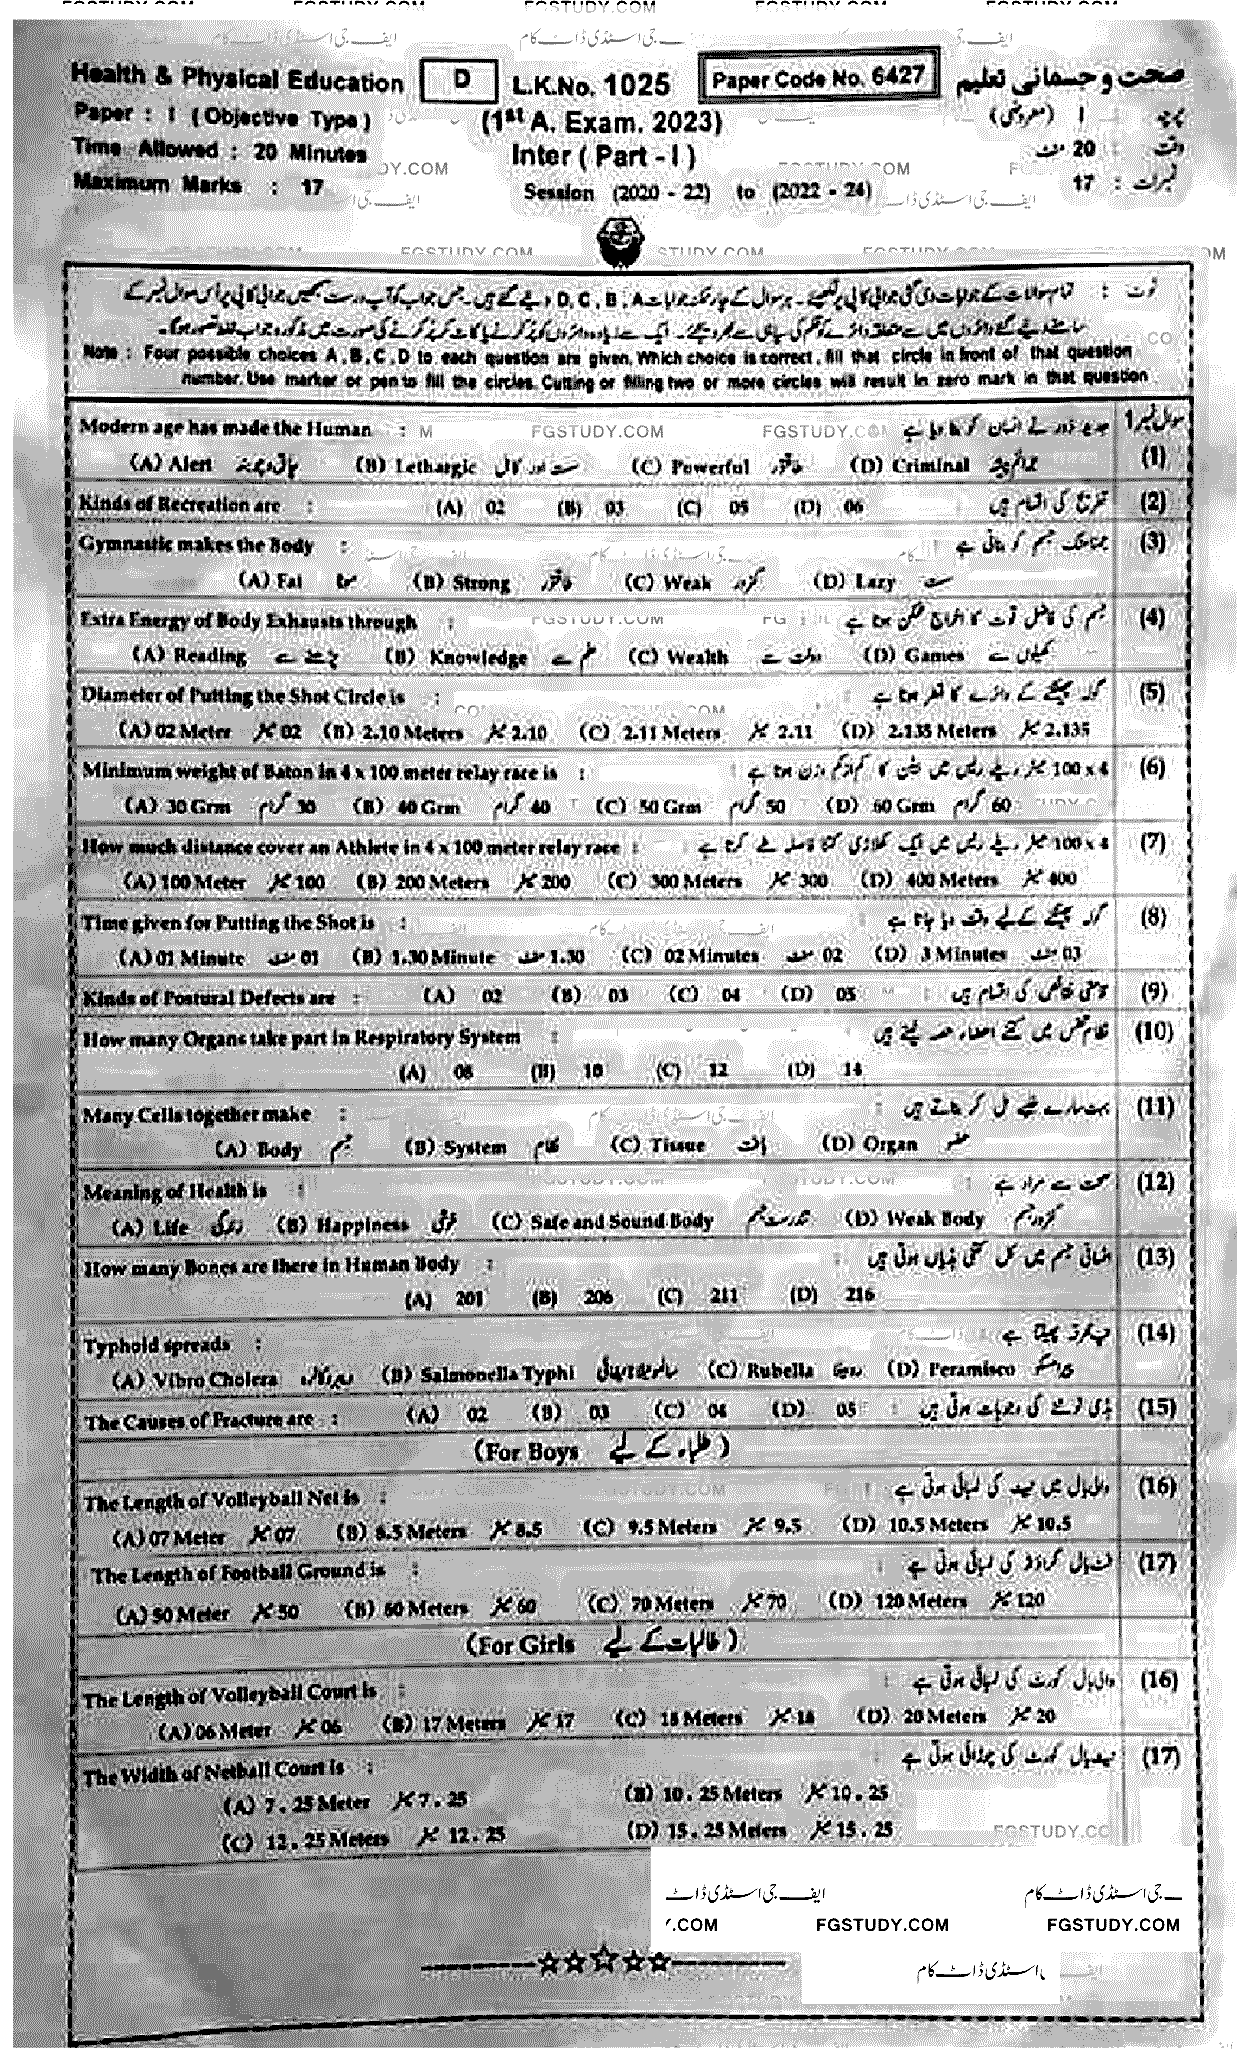 Health & Physical Education D L.K.No. 1025 Paper Code No. 6427 صحت و جسمانی تعلیم
Paper : I (Objective Type) (1st A. Exam. 2023) پرچہ : I (معروضی)
Time Allowed : 20 Minutes Inter (Part - I) وقت : 20 منٹ
Maximum Marks : 17 Session (2020 - 22) to (2022 - 24) نمبرات : 17
Note : Four possible choices A , B , C , D to each question are given. Which choice is correct, fill that circle in front of that question
number. Use marker or pen to fill the circles. Cutting or filling two or more circles will result in zero mark in that question
Modern age has made the Human : سوال نمبر 1
(A) Alert (B) Lethargic سست اور کاہل (C) Powerful طاقتور (D) Criminal جرائم پیشہ (1)
Kinds of Recreation are : (A) 02 (B) 03 (C) 05 (D) 06 تفریح کی اقسام ہیں (2)
Gymnastic makes the Body : جمناسٹک جسم کو بناتی ہے (3)
(A) Fat موٹا (B) Strong طاقتور (C) Weak کمزور (D) Lazy سست
Extra Energy of Body Exhausts through : جسم کی فاضل قوت کا اخراج ممکن ہوتا ہے (4)
(A) Reading پڑھنے سے (B) Knowledge علم سے (C) Wealth دولت سے (D) Games کھیلوں سے
Diameter of Putting the Shot Circle is : گولہ پھینکنے کے دائرے کا قطر ہوتا ہے (5)
(A) 02 Meter 02 میٹر (B) 2.10 Meters 2.10 میٹر (C) 2.11 Meters 2.11 میٹر (D) 2.135 Meters 2.135 میٹر
Minimum weight of Baton in 4 x 100 meter relay race is : 4 x 100 میٹر ریلے ریس میں بیٹن کا کم از کم وزن ہوتا ہے (6)
(A) 30 Grm 30 گرام (B) 40 Grm 40 گرام (C) 50 Grm 50 گرام (D) 60 Grm 60 گرام
How much distance cover an Athlete in 4 x 100 meter relay race : 4 x 100 میٹر ریلے ریس میں ایک کھلاڑی کتنا فاصلہ طے کرتا ہے (7)
(A) 100 Meter 100 میٹر (B) 200 Meters 200 میٹر (C) 300 Meters 300 میٹر (D) 400 Meters 400 میٹر
Time given for Putting the Shot is : گولہ پھینکنے کے لیے وقت دیا جاتا ہے (8)
(A) 01 Minute 01 منٹ (B) 1.30 Minute 1.30 منٹ (C) 02 Minutes 02 منٹ (D) 3 Minutes 03 منٹ
Kinds of Postural Defects are : (A) 02 (B) 03 (C) 04 (D) 05 قامتی نقائص کی اقسام ہیں (9)
How many Organs take part in Respiratory System : نظام تنفس میں کتنے اعضاء حصہ لیتے ہیں (10)
(A) 08 (B) 10 (C) 12 (D) 14
Many Cells together make : بہت سارے خلیے مل کر بناتے ہیں (11)
(A) Body جسم (B) System نظام (C) Tissue بافت (D) Organ عضو
Meaning of Health is : صحت سے مراد ہے (12)
(A) Life زندگی (B) Happiness خوشی (C) Safe and Sound Body تندرست جسم (D) Weak Body کمزور جسم
How many Bones are there in Human Body : انسانی جسم میں کل کتنی ہڈیاں ہوتی ہیں (13)
(A) 201 (B) 206 (C) 211 (D) 216
Typhoid spreads : (14)
(A) Vibro Cholera (B) Salmonella Typhi (C) Rubella روبیلا (D) Peramisco
The Causes of Fracture are : (A) 02 (B) 03 (C) 04 (D) 05 ہڈی ٹوٹنے کی وجوہات ہوتی ہیں (15)
(For Boys طلباء کے لیے)
The Length of Volleyball Net is : والی بال میں نیٹ کی لمبائی ہوتی ہے (16)
(A) 07 Meter 07 میٹر (B) 8.5 Meters 8.5 میٹر (C) 9.5 Meters 9.5 میٹر (D) 10.5 Meters 10.5 میٹر
The Length of Football Ground is : فٹ بال گراؤنڈ کی لمبائی ہوتی ہے (17)
(A) 50 Meter 50 میٹر (B) 60 Meters 60 میٹر (C) 70 Meters 70 میٹر (D) 120 Meters 120 میٹر
(For Girls طالبات کے لیے)
The Length of Volleyball Court is : والی بال کورٹ کی لمبائی ہوتی ہے (16)
(A) 06 Meter 06 میٹر (B) 17 Meters 17 میٹر (C) 18 Meters 18 میٹر (D) 20 Meters 20 میٹر
The Width of Netball Court is : نیٹ بال کورٹ کی چوڑائی ہوتی ہے (17)
(A) 7 . 25 Meter 7 . 25 میٹر (B) 10 . 25 Meters 10 . 25 میٹر
(C) 12 . 25 Meters 12 . 25 میٹر (D) 15 . 25 Meters 15 . 25 میٹر
FGSTUDY.COM
ایف جی اسٹڈی ڈاٹ کام
FGSTUDY.COM FGSTUDY.COM